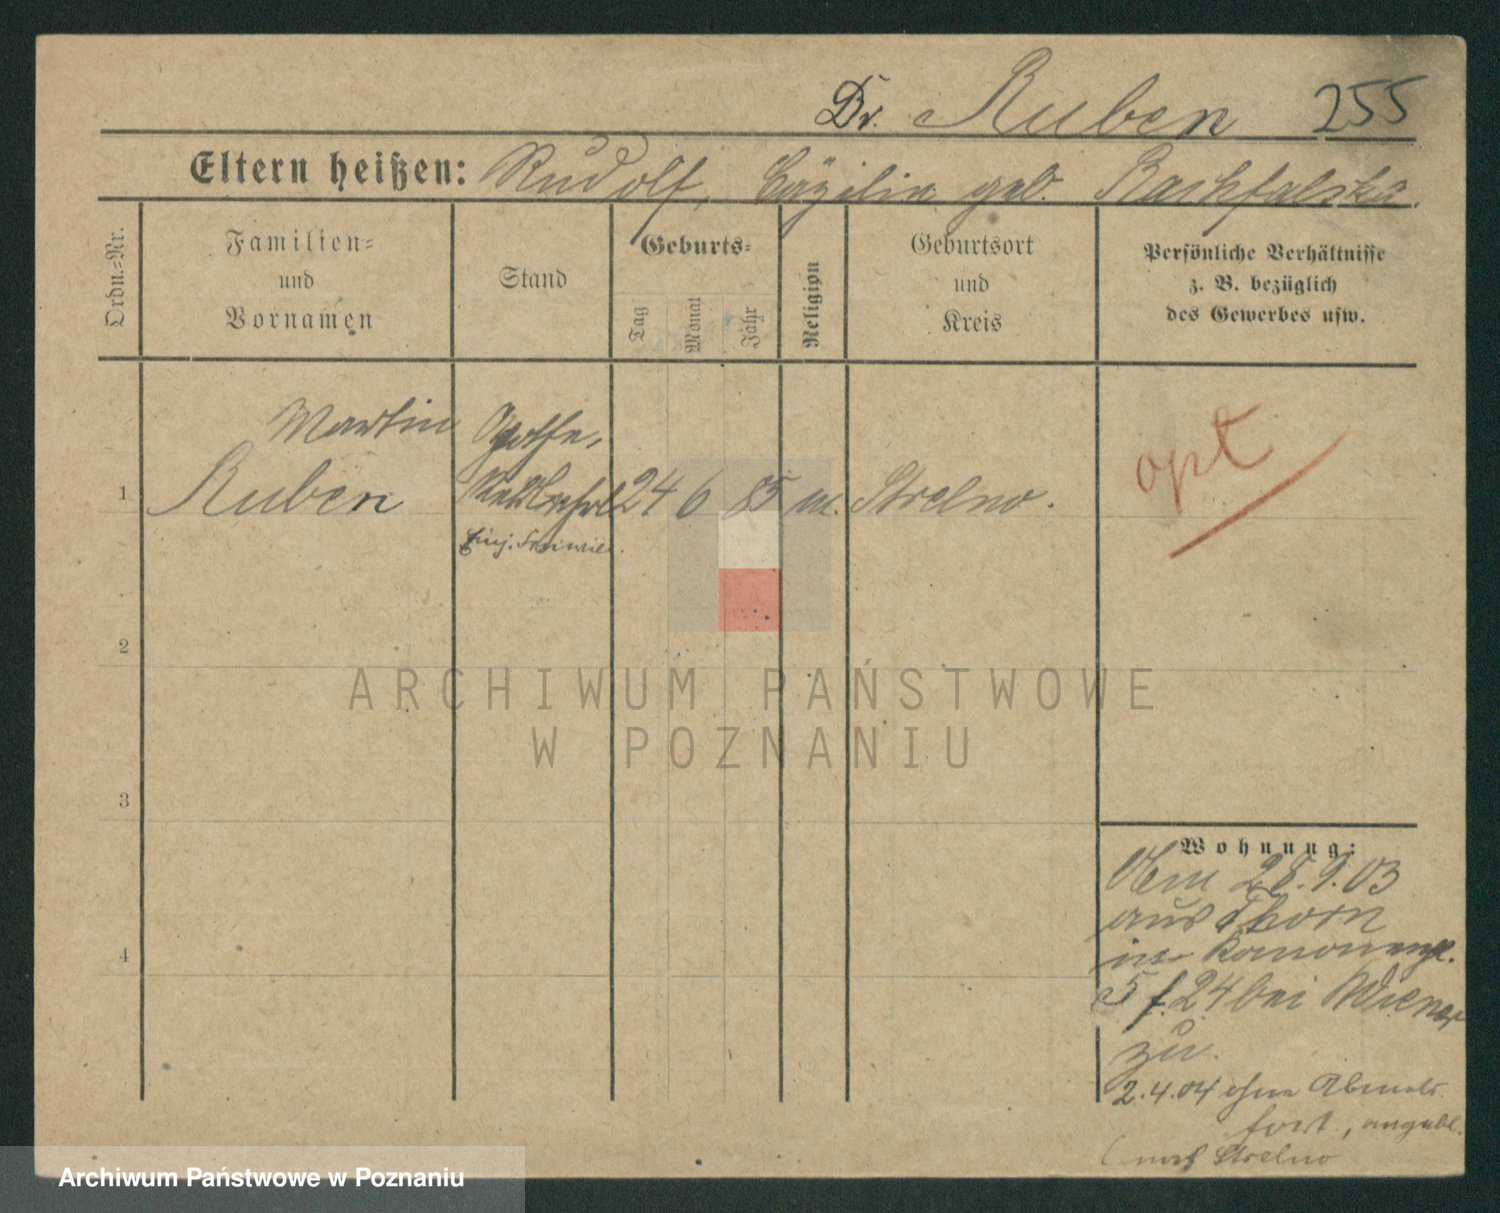 Dr. Ruben 255
Eltern heißen: Rudolf, Cäzilie geb. Rachfalska.
Ordn.-Nr.
Familien-
und
Vornamen
Stand
Geburts-
Tag
Monat
Jahr
Religion
Geburtsort
und
Kreis
Persönliche Verhältnisse
z. B. bezüglich
des Gewerbes usw.
Martin Apothe,
1 Ruben 24 6 85 m. Strelno.
Einj. Freiwill.
opt
2
3
4
Wohnung:
28.9.03
aus Thorn
in
5 f. 24 bei Wiener
zu.
2.4.04 ohne Abmeld.
fort, angebl.
(nach Strelno
ARCHIWUM PAŃSTWOWE
W POZNANIU
Archiwum Państwowe w Poznaniu